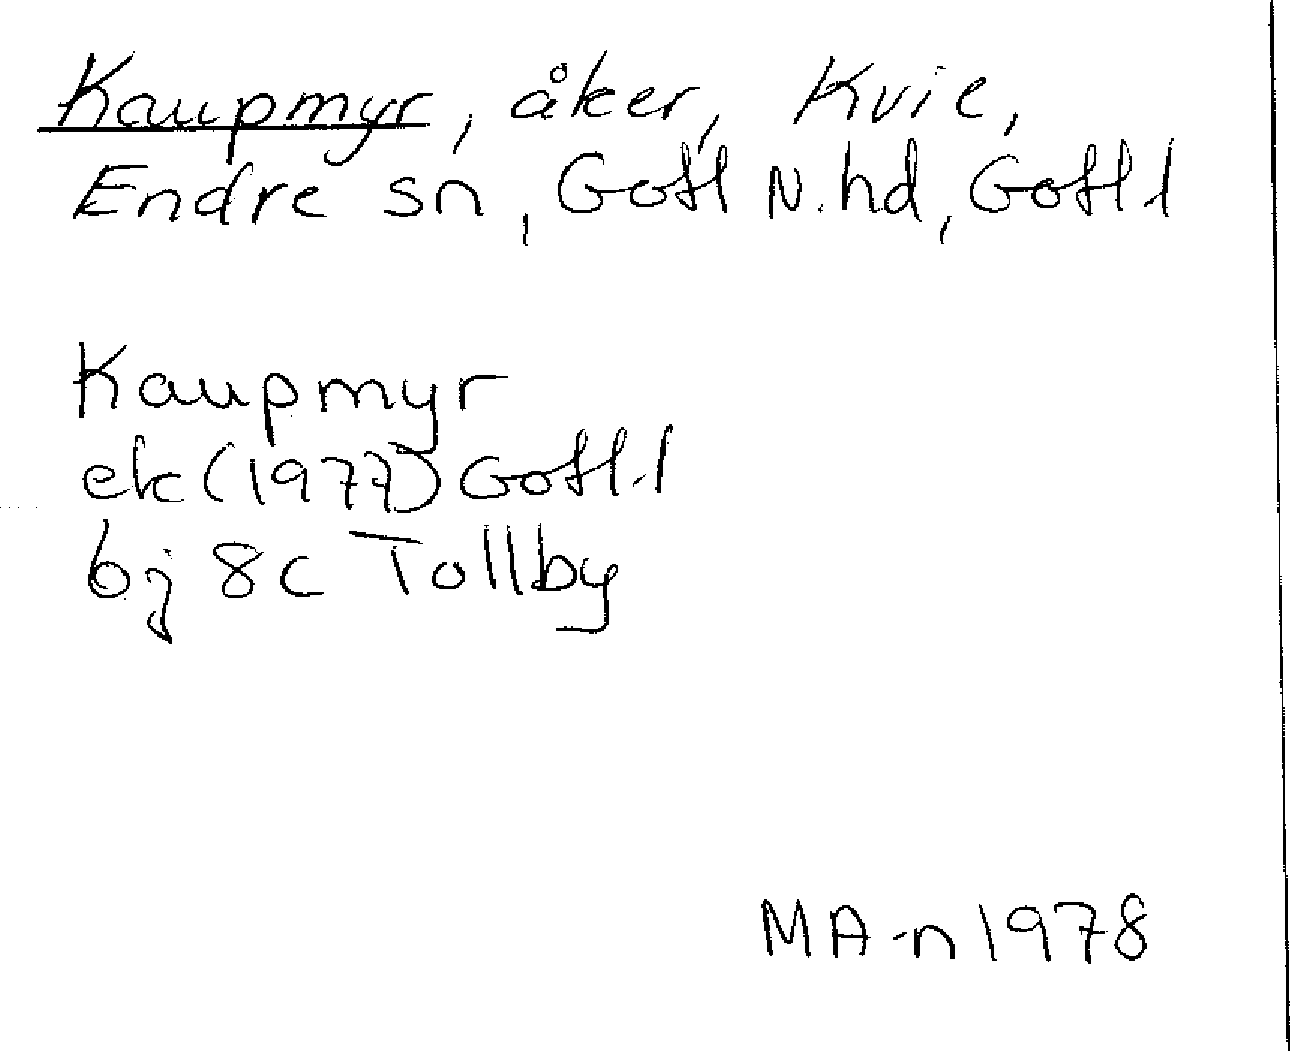 Kaupmyr, åker, Kvie,
Endre sn, Gotl N. hd, Gotl l
Kaupmyr
ek (1977) Gotl. l
bj 8c Tollby
MA-n 1978